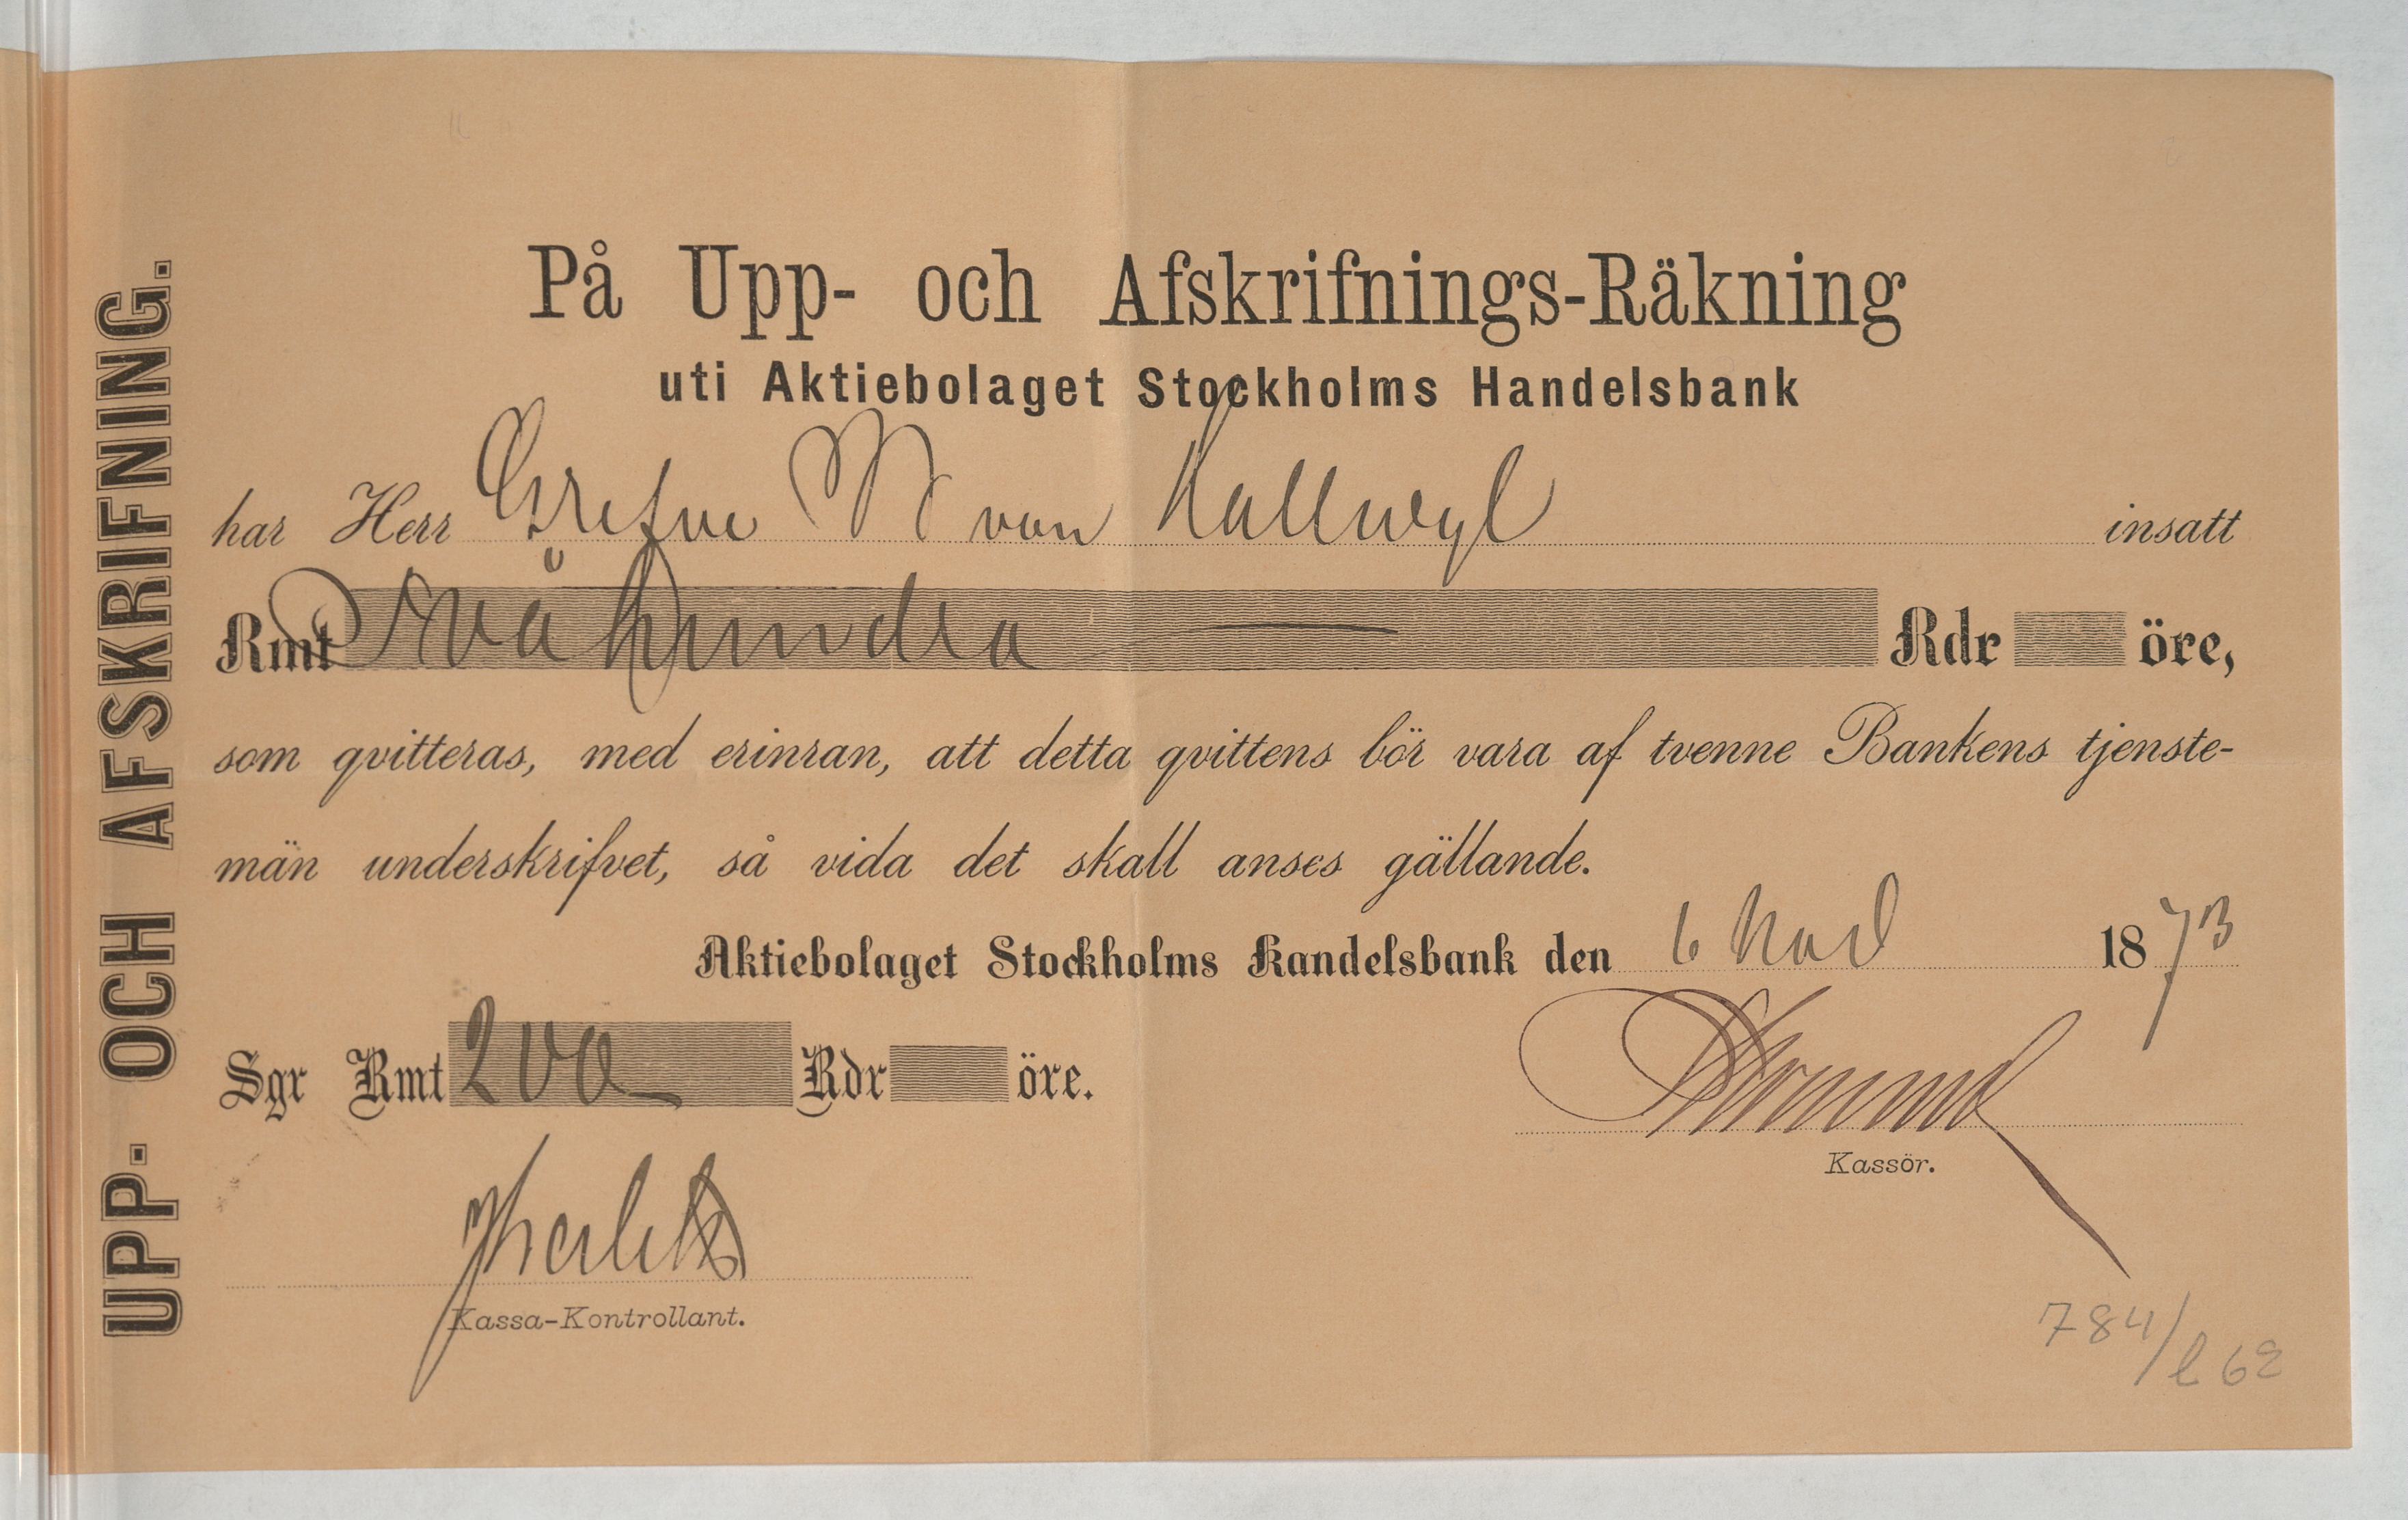 UPP- OCH AFSKRIFNING.
På Upp- och Afskrifnings-Räkning
uti Aktiebolaget Stockholms Handelsbank
har Herr Grefve W von Hallwyl insatt
Rmt Tvåhundra — Rdr öre,
som qvitteras, med erinran, att detta qvittens bör vara af tvenne Bankens tjenste-
män underskrifvet, så vida det skall anses gällande.
Aktiebolaget Stockholms Handelsbank den 6 Nov 1873
Sgr Rmt 200 Rdr öre.
Kassör.
Kassa-Kontrollant.
784/l 62